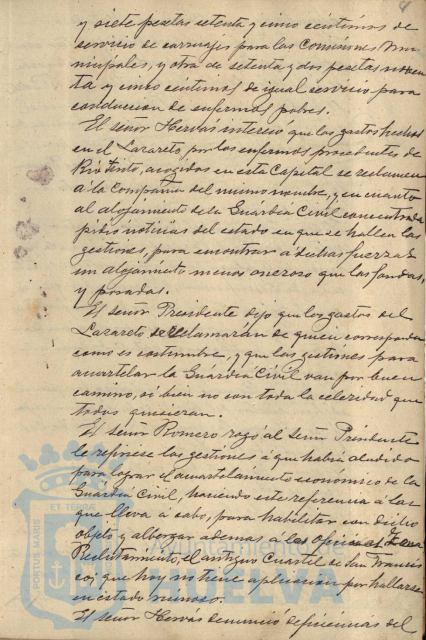 4
y siete pesetas setenta y cinco céntimos de
servicio de carruajes para las Comisiones Mu-
nicipales, y otra de setenta y dos pesetas noven-
ta y cinco céntimos de igual servicio para
conduccion de enfermos pobres.
El señor Hervás intereso que los gastos hechos
en el Lazareto por los enfermos procedentes de
Rio Tinto, acogidos en esta Capital se reclamen
á la Compañia del mismo nombre, y en cuanto
al alojamiento de la Guardia Civil concentrada
pidio noticias del estado en que se hallen las
gestiones, para encontrar á dichas fuerzas
un alojamiento menos oneroso que las fondas,
y posadas.
El señor Presidente dijo que los gastos del
Lazareto se reclamarán de quien corresponda
como es costumbre, y que las gestiones para
acuartelar la Guardia Civil van por buen
camino, si bien no con toda la celeridad que
todos quisieran.
El señor Romero rogó al señor Presidente
le expresase las gestiones á que habia aludido
para lograr el acuartelamiento económico de la
Guardia Civil, haciendo este referencia á las
que lleva á cabo, para habilitar con dicho
objeto y albergar ademas á las oficinas
Reclutamiento, el antiguo Cuartel de San Francis
co, que hoy no tiene aplicacion por hallarse
en estado ruinoso.
El señor Hervás denunció deficiencias del
PORTUS MARIS
ET TERRAE
Ayuntamiento de
HUELVA